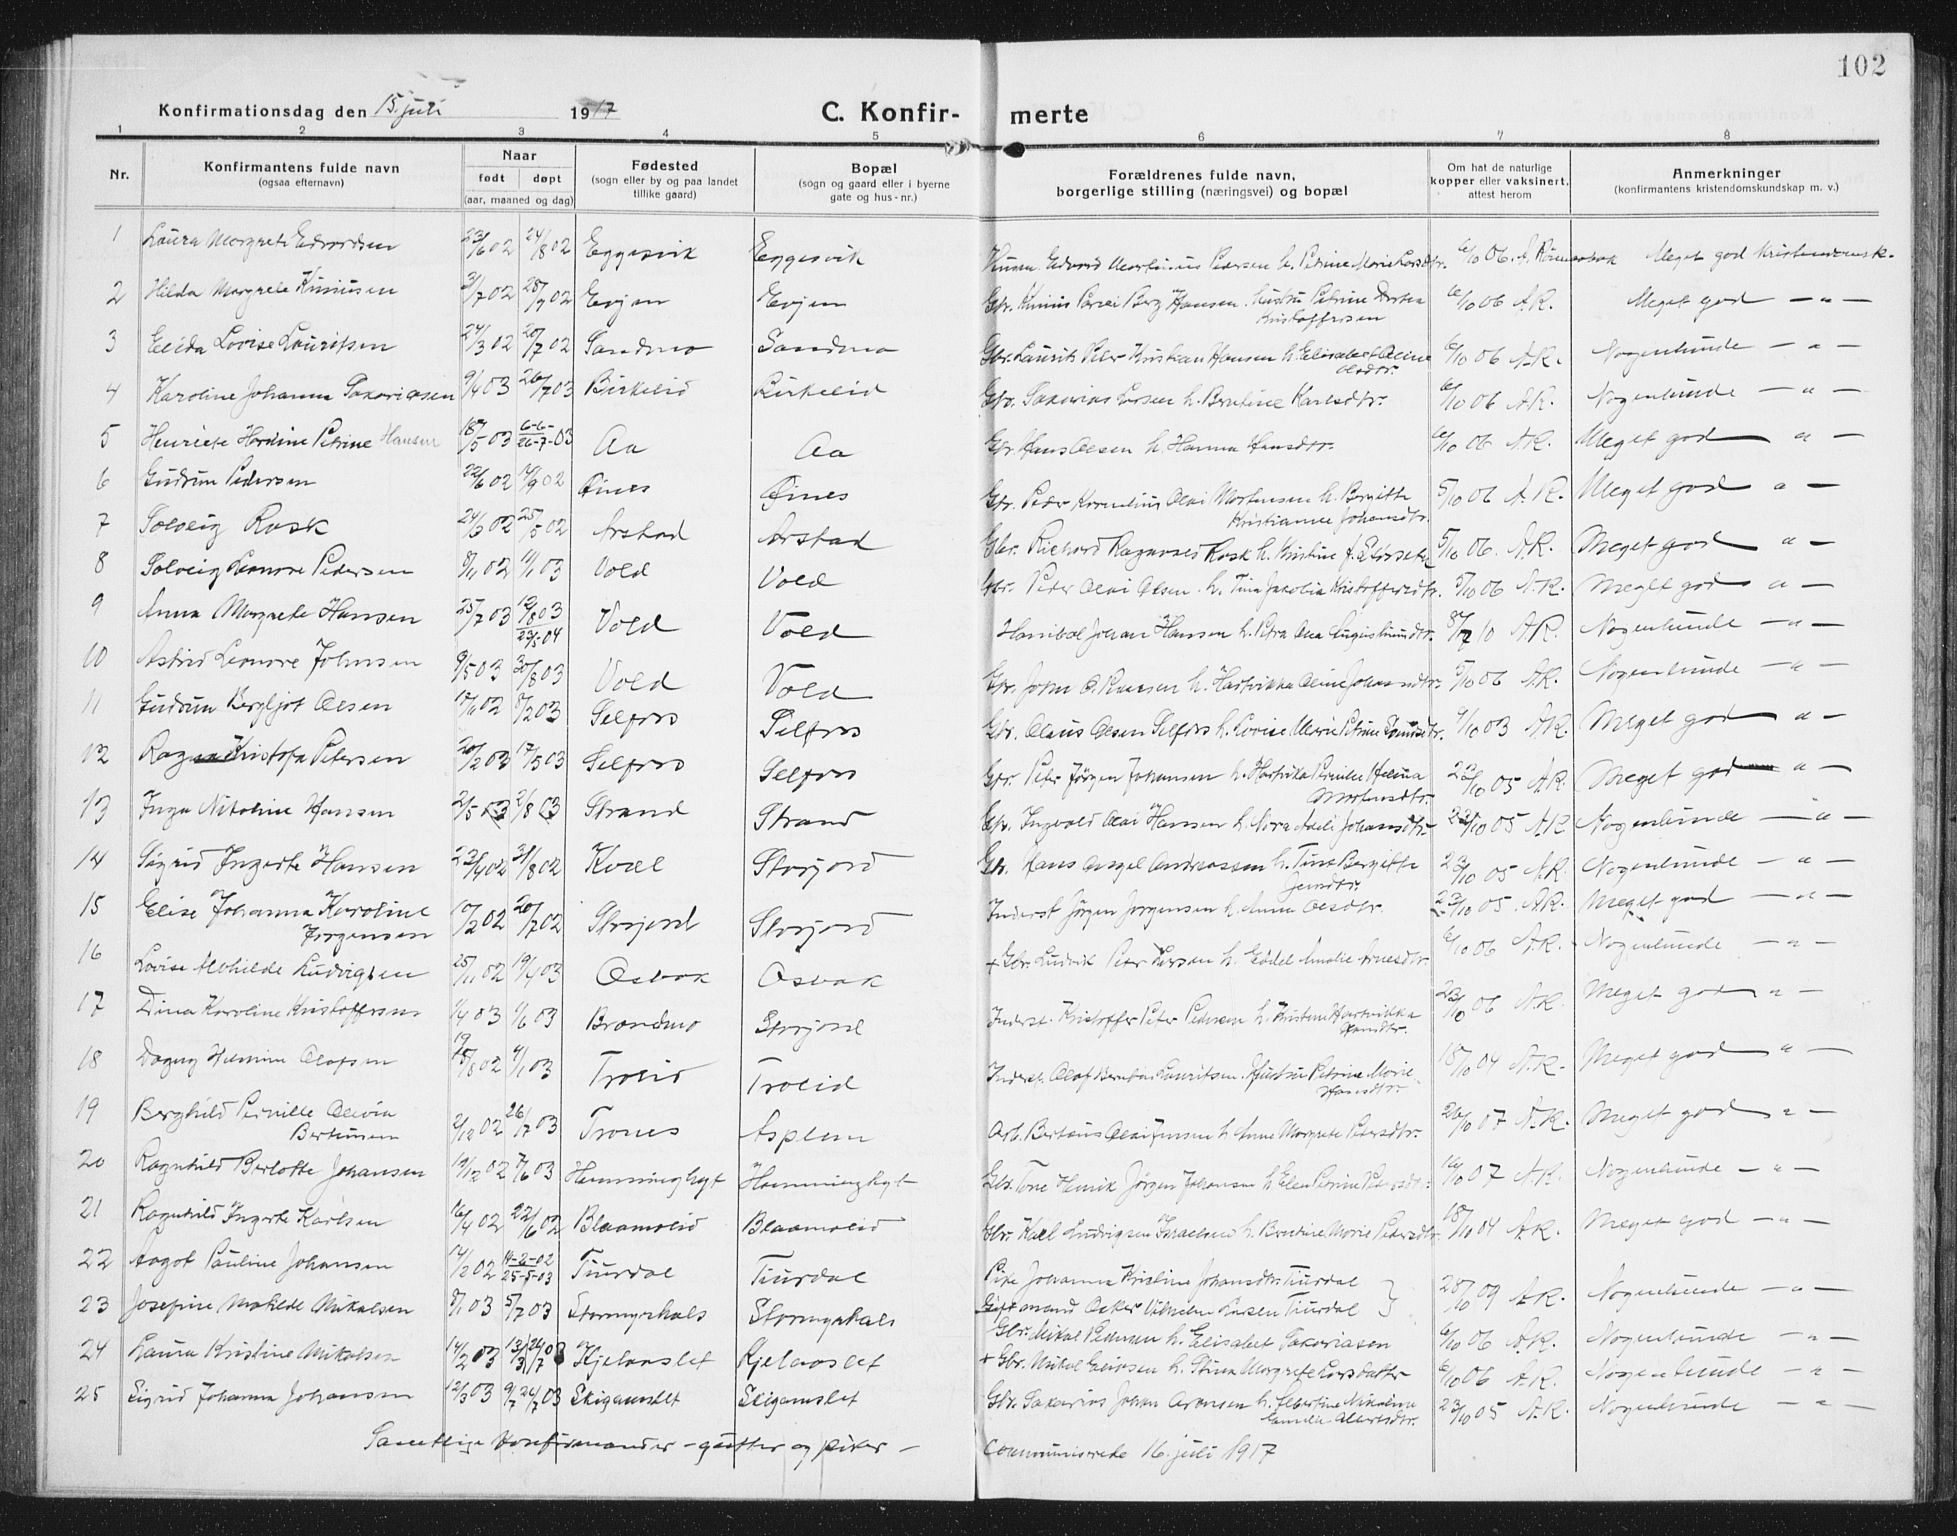 102
Konfirmationsdag den 15. juli 1917 C. Konfirmerte
1 2 3 4 5 6 7 8
Nr. Konfirmantens fulde navn (ogsaa efternavn) Naar født døpt (aar, maaned og dag) Fødested (sogn eller by og paa landet tillike gaard) Bopæl (sogn og gaard eller i byerne gate og hus-nr.) Forældrenes fulde navn, borgerlige stilling (næringsvei) og bopæl Om hat de naturlige kopper eller vaksinert, attest herom Anmerkninger (konfirmantens kristendomskundskap m. v.)
1 Laura Margrete Edvardsen 23/6 02 24/8 02 Eggesvik Eggesvik Edvard Martinus Pedersen h. Petrine Marie Larsdtr. 6/10 06. A. Meget god Kristendomsk.
2 Hilda Margrete 31/7 02 28/9 02 Evjen Evjen Gbr. Berg Hansen hustru Petrine Dortea Kristoffersen 6/10 06 A.R. Meget god — " —
3 Elida Lovise Lauritsen 24/3 02 20/7 02 Sandmo Sandmo Gbr. Laurits Peter Kristian Hansen h. Elisabet Oline Olsdtr. 6/10 06 A.R. Nogenlunde — " —
4 Karoline Johanna Sakariasen 9/4 03 26/7 03 Birkelid Birkelid Gbr. Sakarias Larsen h. Berntine Karlsdtr. 6/10 06 A.R. Nogenlunde — " —
5 Henriete Hardine Petrine Hansen 18/5 03 6-6- 26-7-03 Aa Aa Gbr. Hans Olsen h. Hanna Hansdtr. 6/10 06 A.R. Meget god — " —
6 Gudrun Pedersen 22/6 02 14/9 02 Øines Øines Gbr. Peder Kornelius Olai Mortensen h. Bergitte Kristianne Johansdtr. 5/10 06 A.R. Meget god " —
7 Solveig Rask 02 25/5 02 Arstad Arstad Gbr. Richard Rask h. Kristine f. 5/10 06. A.R. Meget god " —
8 Solveig Leonore Pedersen 8/11 02 11/1 03 Vold Vold Gbr. Peder Olai Olsen h. Tina Jakobia Kristoffersdtr. 5/10 06 A.R. Meget god " —
9 Anna Margrete Hansen 25/7 03 12/8 03 23/5-04 Vold Vold Hanibal Johan Hansen h. Petra Ana 10 A.R. Nogenlunde — " —
10 Astrid Leonore Johnsen 9/5 03 30/8 03 Vold Vold Gbr. John h. Hartvikka Oline Johansdtr. 5/10 06 A.R. Nogenlunde — " —
11 Gudrun Bergljot Olsen 02 8/2 03 Selfors Selfors Gbr. Olaus Olsen Selfors h. Lovise Marie Petrine 9/10 03 A.R. Meget god " —
12 Kristofa Petersen 20/2 03 17/5 03 Selfors Selfors Gbr. Peter Jørgen Johansen h. Hartvika Helena Mortensdtr. 05 A.R. Meget god — " —
13 Inga Nikoline Hansen 2/5 03 2/8 03 Strand Strand Gbr. Ingvald Olai Hansen h. Nora Adeli Johansdtr. 05 A.R. Nogenlunde — " —
14 Sigrid Ingerte Hansen 23/4 02 31/8 02 Kvæl Storjord Gbr. Hans Angel Andreassen h. Tina Bergitte Jensdtr. 23/10 05 A.R. Nogenlunde — " —
15 Elise Johanna Karoline Jørgensen 17/2 02 20/7 02 Storjord Storjord Inderst Jørgen Jørgensen h. Anna Olsdtr. 23/10 05. A.R. Meget god — " —
16 Lovise Alvhilde Ludvigsen 25/11 02 19/4 03 Osbak Osbak + Gbr. Ludvik Peter Larsen h. Edel Amalie Arnesdtr. 6/10 06 A.R. Nogenlunde — " —
17 Dina Karoline Kristoffersen 1/4 03 1/6 03 Brandmo Storjord Inderst. Kristoffer Peter Pedersen h. Kristine Hartvikka Hansdtr. 23/10 06 A.R. Meget god " —
18 Dagny Helmine Olafsen 02 4/1 03 Trolid Trolid Inderst. Olaf Lauritsen. Hustru Petrine Marie Hansdtr. 18/10 04 A.R. Meget god " —
19 Berghild Pernille Olevia Bertinsen 2/12 02 26/7 03 Trones Asplem Arb. Bertaus Olai Jensen h. Anne Margrete Pedersdtr. 26/10 07 A.R. Meget god " —
20 Ragnhild Berlotte Johansen 19/12 02 7/6 03 Hemminghyt Hemminghyt Gbr. Tore Henrik Jørgen Johansen h. Elen Petrine Pedersdtr. 07 A.R. Nogenlunde — " —
21 Ragnhild Ingerte Karlsen 16/4 02 22/6 02 Blaamolid Blaamolid Gbr. Karl Ludvigsen Israelsen h. Berntine Marie Pedersdtr. 18/10 04 A.R. Meget god — " —
22 Aagot Pauline Johansen 14/2 02 14-2-02 25-5-03 Tiurdal Tiurdal Pike Johanna Kristine Johansdtr. Tiurdal
Gift mand Osker Vilhelm Larsen Tiurdal 28/10 09 A.R. Nogenlunde — " —
23 Josefine Makilde Mikalsen 8/1 03 5/7 03 Stormyrhals Stormyrhals Gbr. Mikal Pedersen h. Elisabet Sakariasen 6/10 06 A.R. Nogenlunde — " —
24 Laura Kristine Mikalsen 14/2 03 13/3 24/7 03 Kjelaaslet Kjelaaslet + Gbr. Mikal h. Stina Margrete Larsdatter 6/10 06 A.R. Nogenlunde — " —
25 Sigrid Johanna Johansen 12/3 03 9/7 24/7 03 Skigamslet Skigamslet Gbr. Sakarias Johan Aronsen h. Albertine Nikoline Albertsdtr. 23/10 05 A.R. Nogenlunde — " —
Samtlige Konfirmander — gutter og piker — communiserede 16. juli 1917